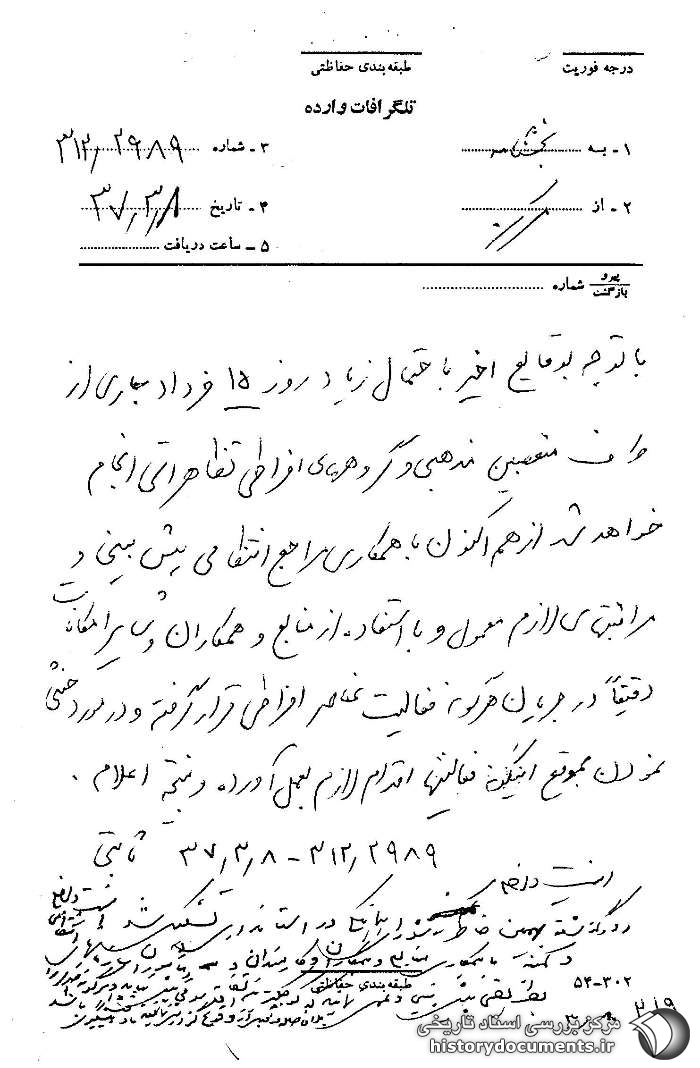 درجه فوریت
طبقه‌بندی حفاظتی
تلگرافات وارده
۱ - به
۳ - شماره ۳۱۲٫۲۹۸۹
۲ - از مرکز
۴ - تاریخ ۳۷٫۳٫۸
۵ - ساعت دریافت
پیرو
بازگشت
شماره
با توجه بوقایع اخیر باحتمال زیاد روز ۱۵ خرداد جاری از
طرف متعصبین مذهبی و گروههای افراطی تظاهراتی انجام
خواهد شد از هم اکنون با همکاری مراجع انتظامی پیش بینی و
مراقبتهای لازم معمول و با استفاده از منابع و همکاران و سایر امکانات
دقیقاً در جریان هرگونه فعالیت عناصر افراطی قرار گرفته و در مورد خنثی
نمودن بموقع اینگونه فعالیتها اقدام لازم بعمل آورده و نتیجه اعلام .
۳۱۲٫۲۹۸۹ - ۳۷٫۳٫۸ ثابتی
امنیت داخلی
روز گذشته بهمین خاطر در استانداری تشکیل شد
طبقه‌بندی حفاظتی
۵۴-۳۰۲
۳۱۹
مرکز بررسی اسناد تاریخی
historydocuments.ir